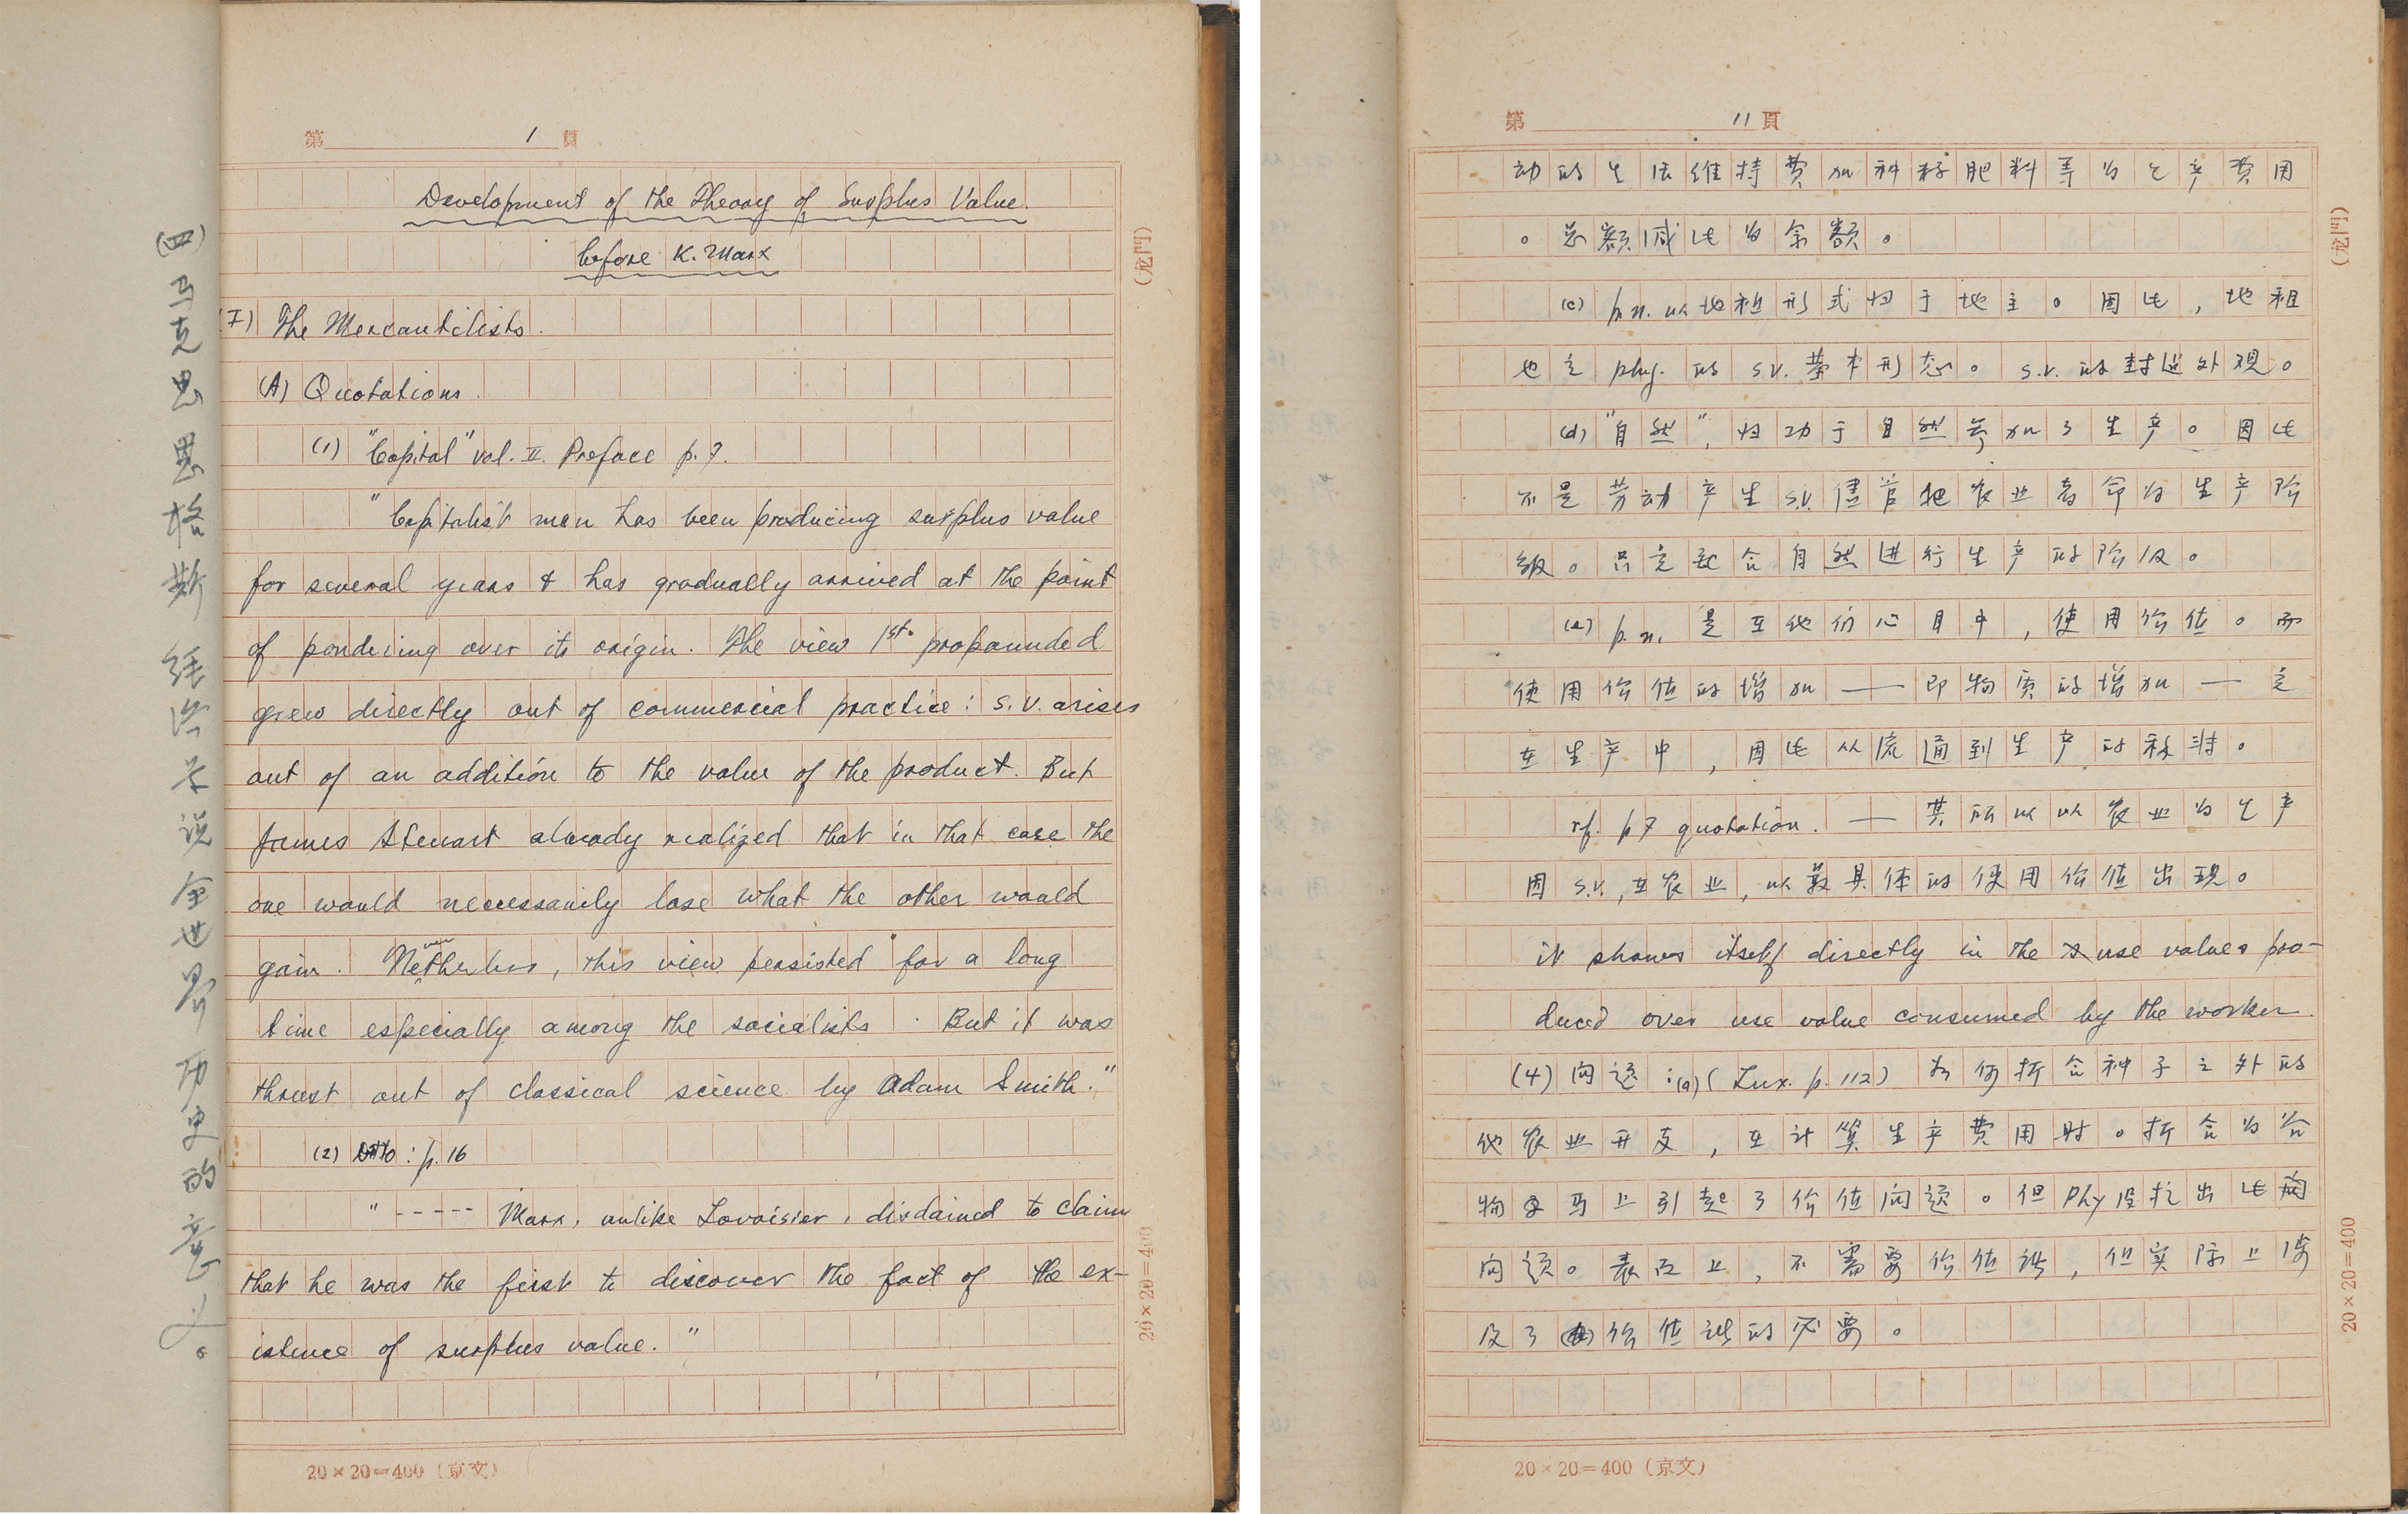 第 1 頁
Development of the Theory of Surplus Value
before K. Marx
(I) The Mercantilists.
(A) Quotations.
(1) "Capital" vol. II. Preface p. 7.
"Capitalist man has been producing surplus value
for several years & has gradually arrived at the point
of pondering over its origin. The view 1st. propounded
grew directly out of commercial practice: s.v. arises
out of an addition to the value of the product. But
James Steuart already realized that in that case the
one would necessarily lose what the other would
gain. Nevertheless, this view persisted for a long
time especially among the socialists. But it was
thrust out of classical science by Adam Smith."
(2) Ditto: p. 16
"----- Marx, unlike Lavoisier, disdained to claim
that he was the first to discover the fact of the ex-
istence of surplus value."
20×20=400（京文）
(龙門)
20×20=400
(四)马克思恩格斯经济学说全世界历史的意义。
第 11 頁
动的生活维持费加种籽肥料等为生产费用
。总额减此为余额。
(c) p.n. 以地租形式归于地主。因此，地租
也是 phy. 的 s.v. 基本形态。s.v. 的封建外观。
(d) "自然"，归功于自然参加了生产。因此
不是劳动产生 s.v. 儘管把农业者命为生产阶
级。只是配合自然进行生产的阶级。
(e) p.n. 是在他们心目中，使用价值。而
使用价值的增加——即物质的增加——是
在生产中，因此从流通到生产的移转。
rf. p 7 quotation. —— 其所以以农业为生产
因 s.v., 在农业，以最具体的使用价值出现。
it shows itself directly in the use values pro-
duced over use value consumed by the worker.
(4) 问题：(a) (Lux. p. 112) 为何折合种子之外的
他农业开支，在计算生产费用时。折合为谷
物又马上引起了价值问题。但 Phy 没提出此两
问题。表面上，不需要价值论，但实际上涉
及了价值论的必要。
20×20=400（京文）
(龙門)
20×20=400